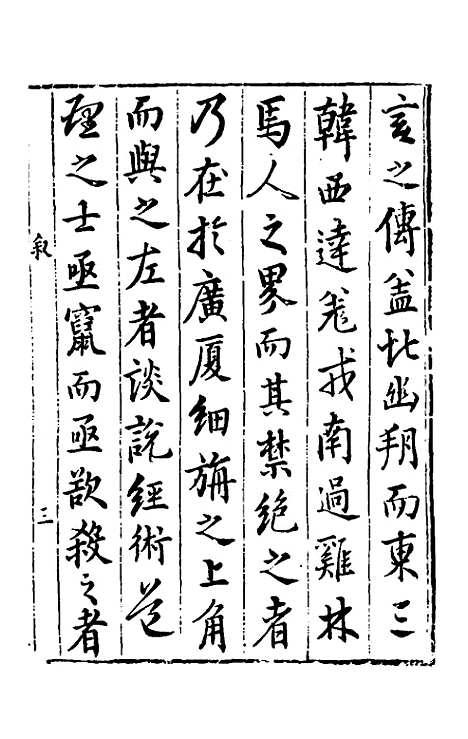 亥之傳盖北幽朔而東三
韓西達羌戎南過雞林
馬人之界而其禁絶之者
乃在於廣厦細旃之上角
而與之左者談說經術道
理之士亟竄而亟欲殺之者
叙
三